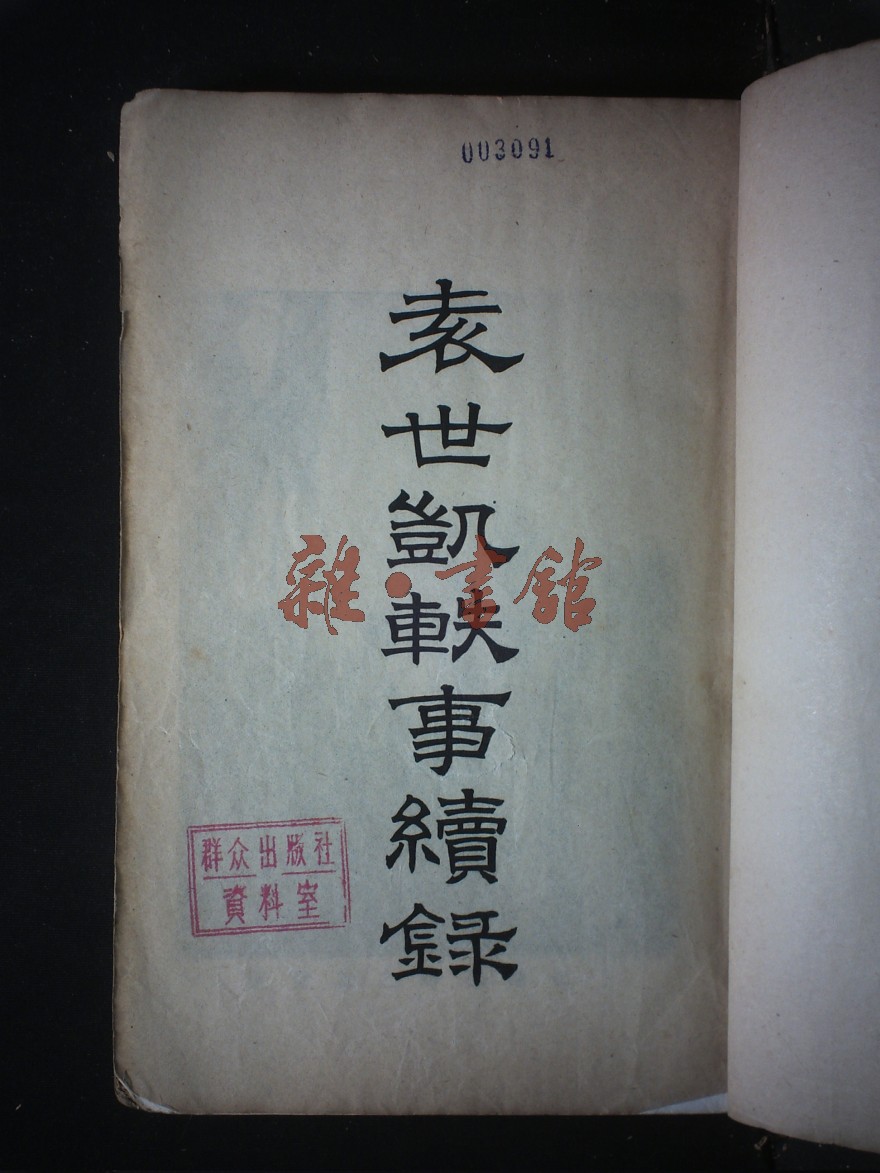 003091
袁世凱軼事續録
雜·書館
群众出版社
資料室